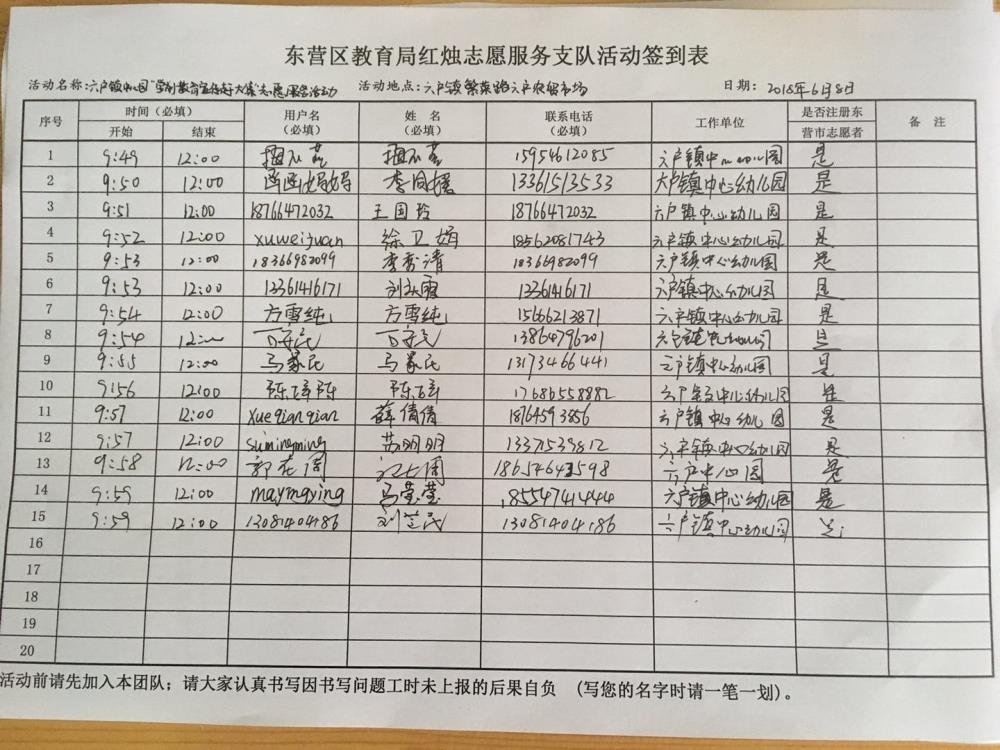 东营区教育局红烛志愿服务支队活动签到表
活动名称:六户镇中心园"学前教育宣传赶大集"志愿服务活动 活动地点:六户镇繁荣路六户农贸市场 日期: 2018年6月8日
序号 时间(必填) 用户名 姓 名 联系电话 工作单位 是否注册东 备 注
开始 结束 (必填) (必填) (必填) 营市志愿者
1 9:49 12:00 15954612085 六户镇中心幼儿园 是
2 9:50 12:00 函函妈妈 李同媛 13361513533 六户镇中心幼儿园 是
3 9:51 12:00 18766472032 王国玲 18766472032 六户镇中心幼儿园 是
4 9:52 12:00 xuweijuan 徐卫娟 18562081743 六户镇中心幼儿园 是
5 9:53 12:00 18366982099 李秀清 18366982099 六户镇中心幼儿园 是
6 9:53 12:00 13361416171 1336146171 六户镇中心幼儿园 是
7 9:54 12:00 方雪纯 方雪纯 15666213871 六户镇中心幼儿园 是
8 9:54 12:00 13864796201 六户镇中心幼儿园 是
9 9:55 12:00 马家民 马家民 13173466441 六户镇中心幼儿园 是
10 9:56 12:00 17686558882 六户镇中心幼儿园 是
11 9:57 12:00 xueqianqian 薛倩倩 18764593856 六户镇中心幼儿园 是
12 9:57 12:00 sumingming 苏明明 13371539812 六户镇中心幼儿园 是
13 9:58 12:00 18654643598 六户中心园 是
14 9:59 12:00 mayingying 马莹莹 18554741444 六户镇中心幼儿园 是
15 9:59 12:00 13081404186 刘兰民 13081404186 六户镇中心幼儿园 是
16
17
18
19
20
活动前请先加入本团队;请大家认真书写因书写问题工时未上报的后果自负 (写您的名字时请一笔一划)。